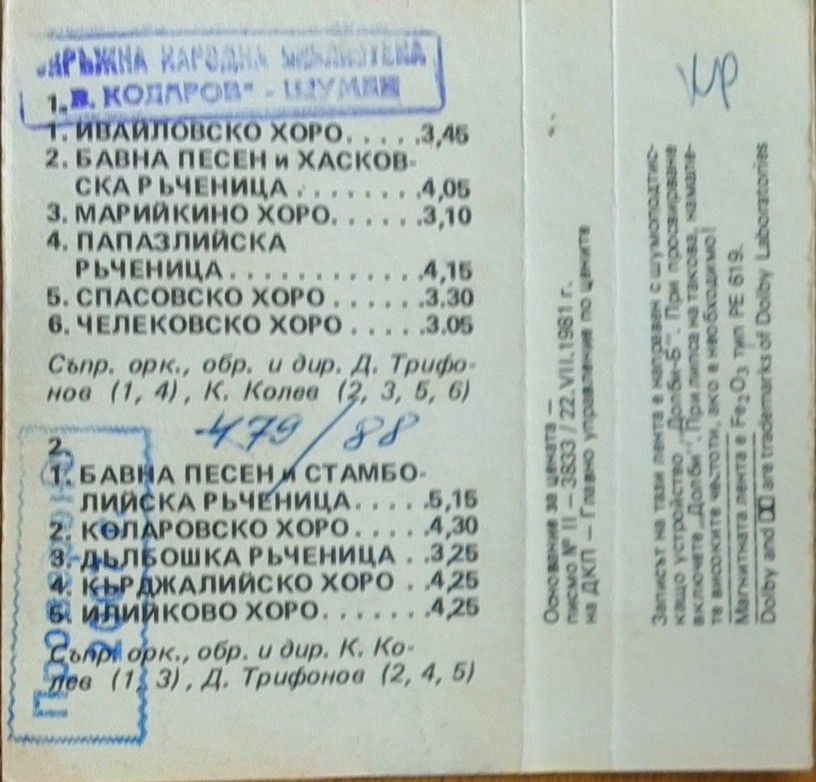 ОКРЪЖНА НАРОДНА БИБЛИОТЕКА
"В. КОЛАРОВ" - ШУМЕН
1.
1. ИВАЙЛОВСКО ХОРО.....3,45
2. БАВНА ПЕСЕН и ХАСКОВ-
СКА РЪЧЕНИЦА........4,05
3. МАРИЙКИНО ХОРО......3,10
4. ПАПАЗЛИЙСКА
РЪЧЕНИЦА............4,15
5. СПАСОВСКО ХОРО......3.30
6. ЧЕЛЕКОВСКО ХОРО.....3.05
Съпр. орк., обр. и дир. Д. Трифо-
нов (1, 4), К. Колев (2, 3, 5, 6)
479/88
2.
1. БАВНА ПЕСЕН и СТАМБО-
ЛИЙСКА РЪЧЕНИЦА.....5,15
2. КОЛАРОВСКО ХОРО.....4,30
3. ДЪЛБОШКА РЪЧЕНИЦА ..3,25
4. КЪРДЖАЛИЙСКО ХОРО ..4,25
5. ИЛИЙКОВО ХОРО.......4,25
Съпр. орк., обр. и дир. К. Ко-
лев (1, 3), Д. Трифонов (2, 4, 5)
Основание за цената —
писмо № II — 3833 / 22.VII.1981 г.
на ДКП — Главно управление по цените
Записът на тази лента е направен с шумоподтис-
кащо устройство „Долби-Б". При просвирване
включете „Долби". При липса на такова, намале-
те високите честоти, ако е необходимо!
Магнитната лента е Fe2O3 тип PE 619.
Dolby and are trademarks of Dolby Laboratories